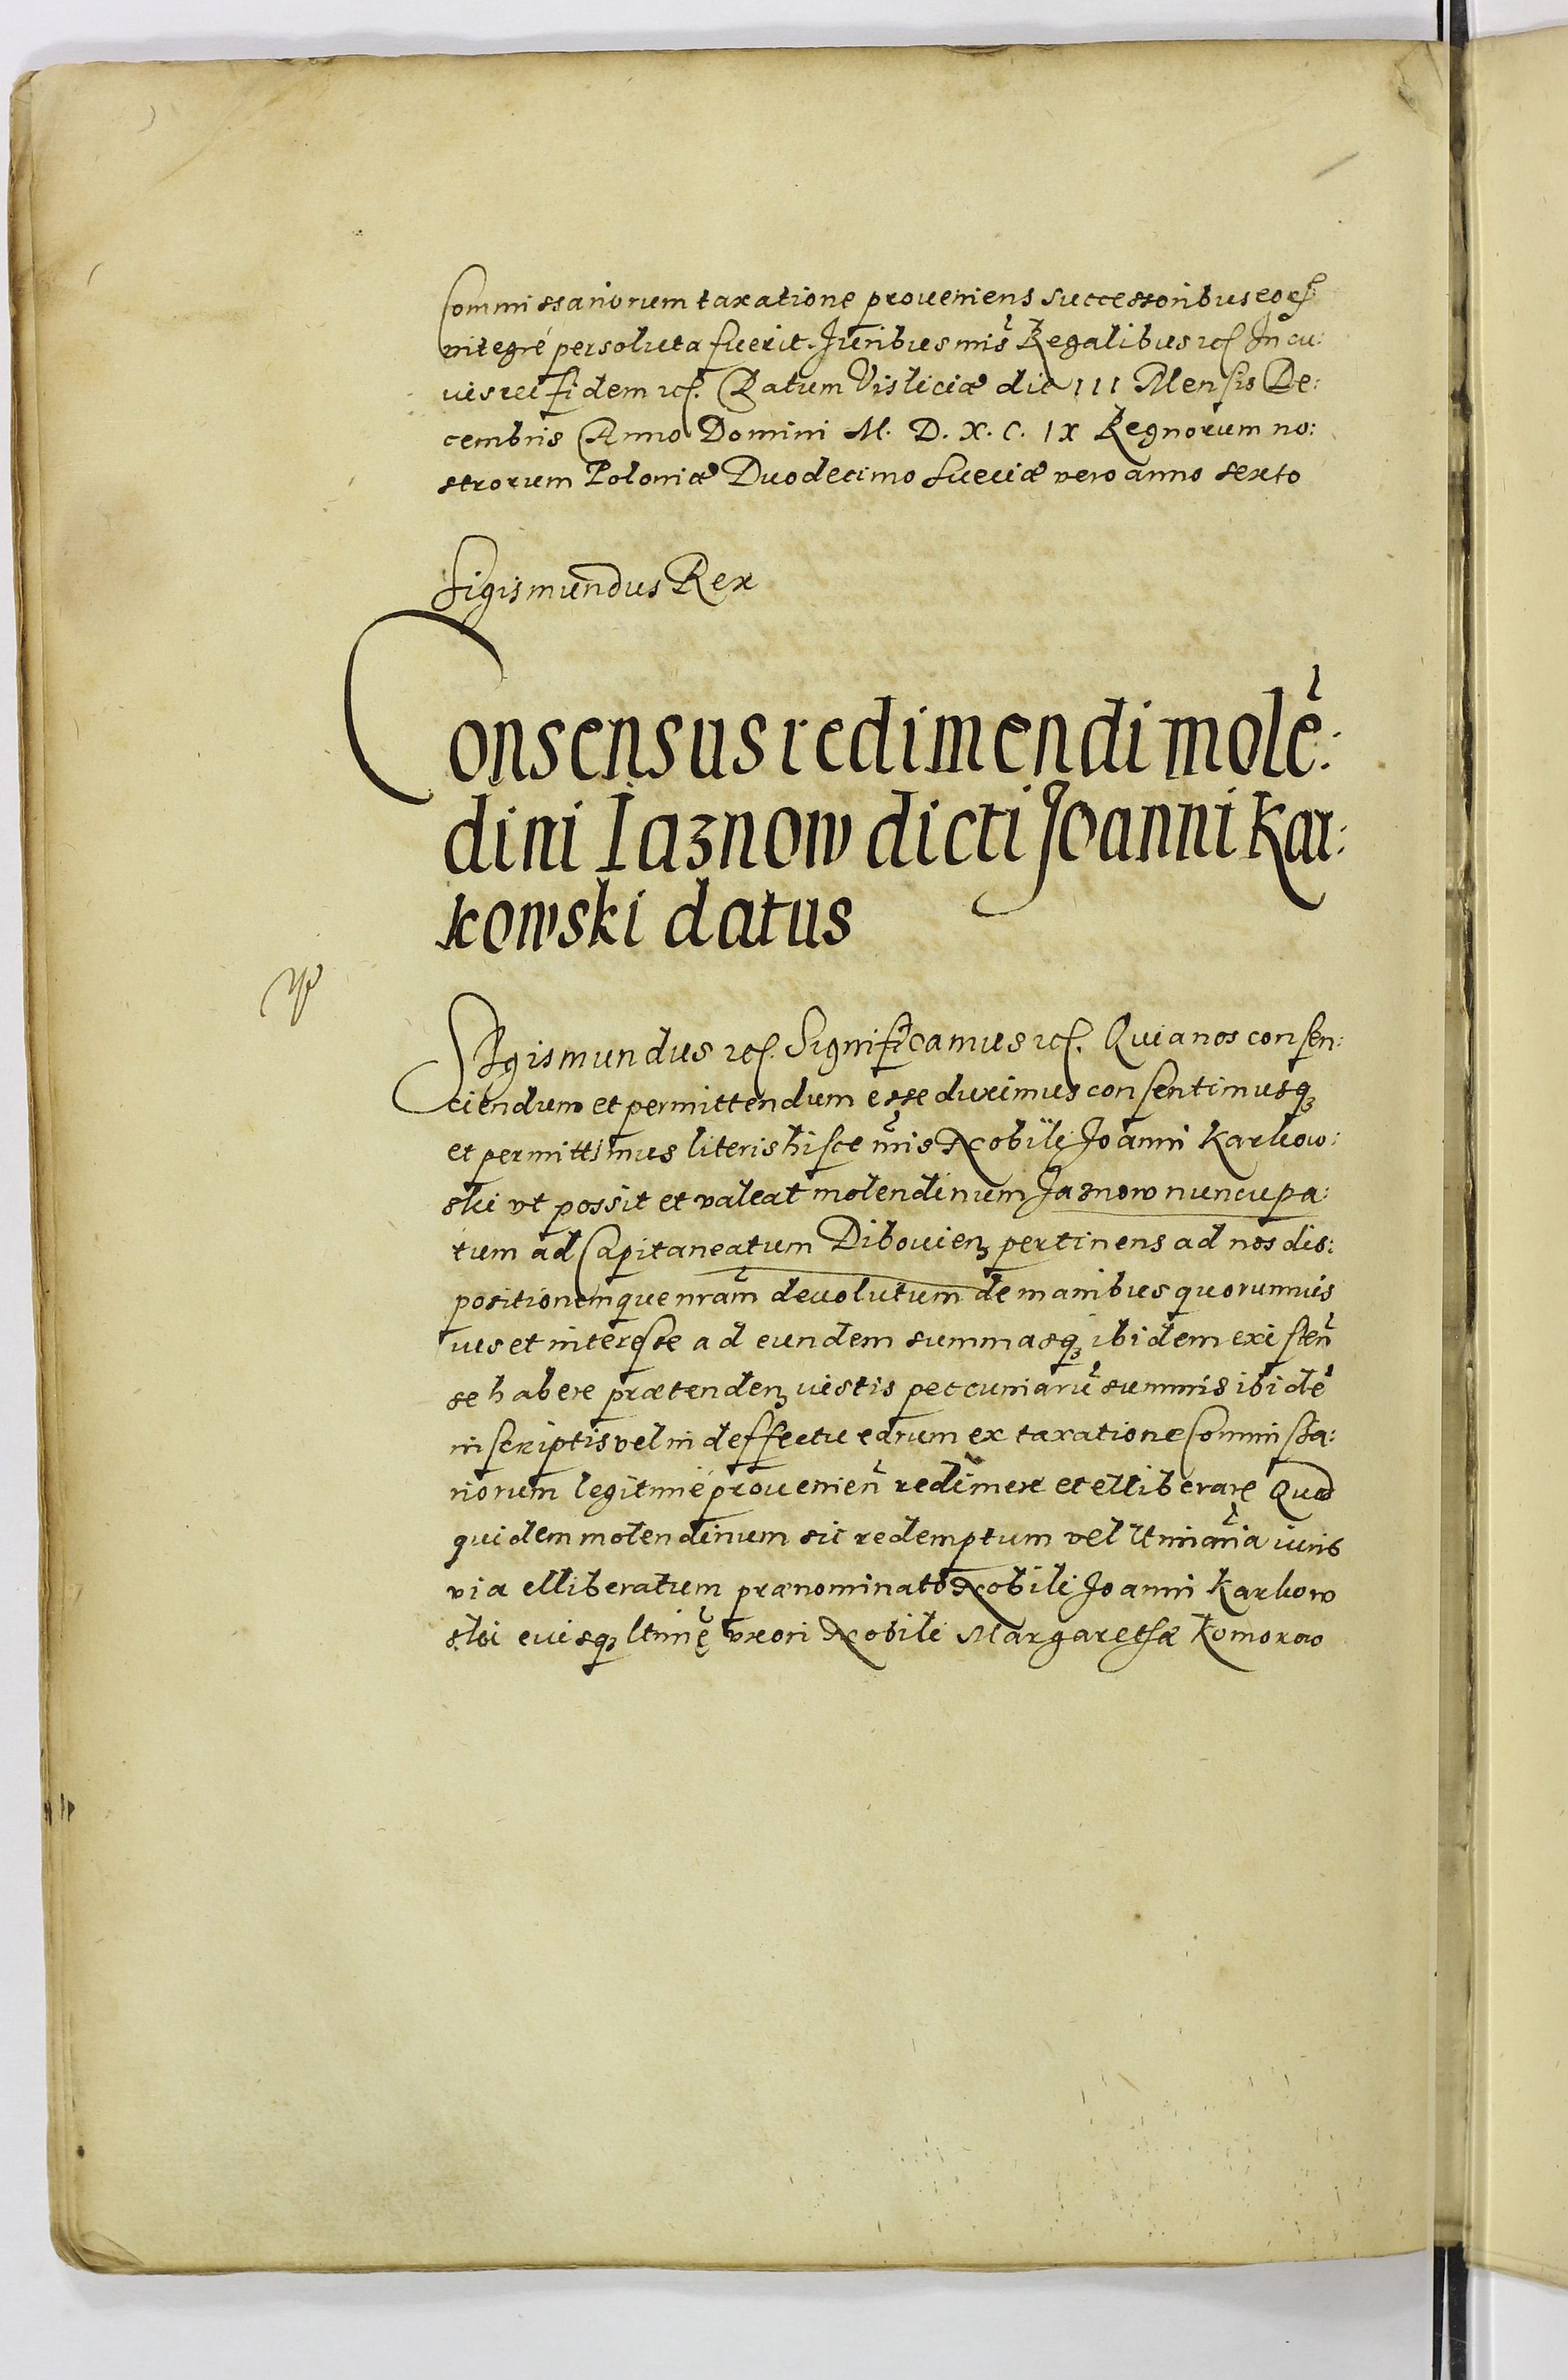 Commissariorum taxatione proueniens successoribus eorꝝ
integrè persoluta fuerit. Juribus nr̃is Regalibus etc. In cu:
ius rei fidem etc. Datum Visliciæ die III Mensis De:
cembris Anno Domini M. D. X. C. IX Regnorum no:
strorum Poloniæ Duodecimo Sueciæ vero anno sexto
Sigismundus Rex
Consensus redimendi molẽ:
dini Iaznow dicti Joanni Kar:
kowski datus
Sigismundus etc. Significamus etc. Quia nos consen:
ciendum et permittendum esse duximus consentimusqꝫ
et permittimus literis hisce nr̃is Nobili Joanni Karkow:
ski vt possit et valeat molendinum Jaznow nuncupa:
tum ad Capitaneatum Dibouienꝫ pertinens ad nos dis:
positionemque nr̃am deuolutum de manibus quorumuis
ius et interesse ad eundem summasqꝫ ibidem existeñ
se habere prætendenꝫ iustis peccuniarũ summis ibidẽ
inscriptis vel in deffectu earum ex taxatione Commissa:
riorum legitimè prouenieñ redimere et elliberare Quod
quidem molendinum sic redemptum vel ltminaria iuris
via elliberatum prænominato Nobili Joanni Karkow
ski eiusqꝫ ltimę vxori Nobili Margarethæ Komorow